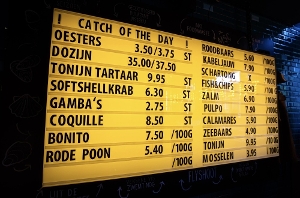 ! CATCH OF THE DAY !
OESTERS 3.50/3.75 ST
DOZIJN 35.00/37.50
TONIJN TARTAAR 9.95 ST
SOFTSHELLKRAB 6.30 ST
GAMBA'S 2.75 ST
COQUILLE 8.50 ST
BONITO 7.50 /100G
RODE POON 5.40 /100G
ROODBAARS /100G
KABELJAUW 5.90 /100G
SCHARTONG X
FISH&CHIPS 5.90 /100G
ZALM 6.90 /100G
PULPO 7.90 /100G
CALAMARES 5.90 /100G
ZEEBAARS 4.90 /100G
TONIJN 9.95 /100G
MOSSELEN 3.95 /100G